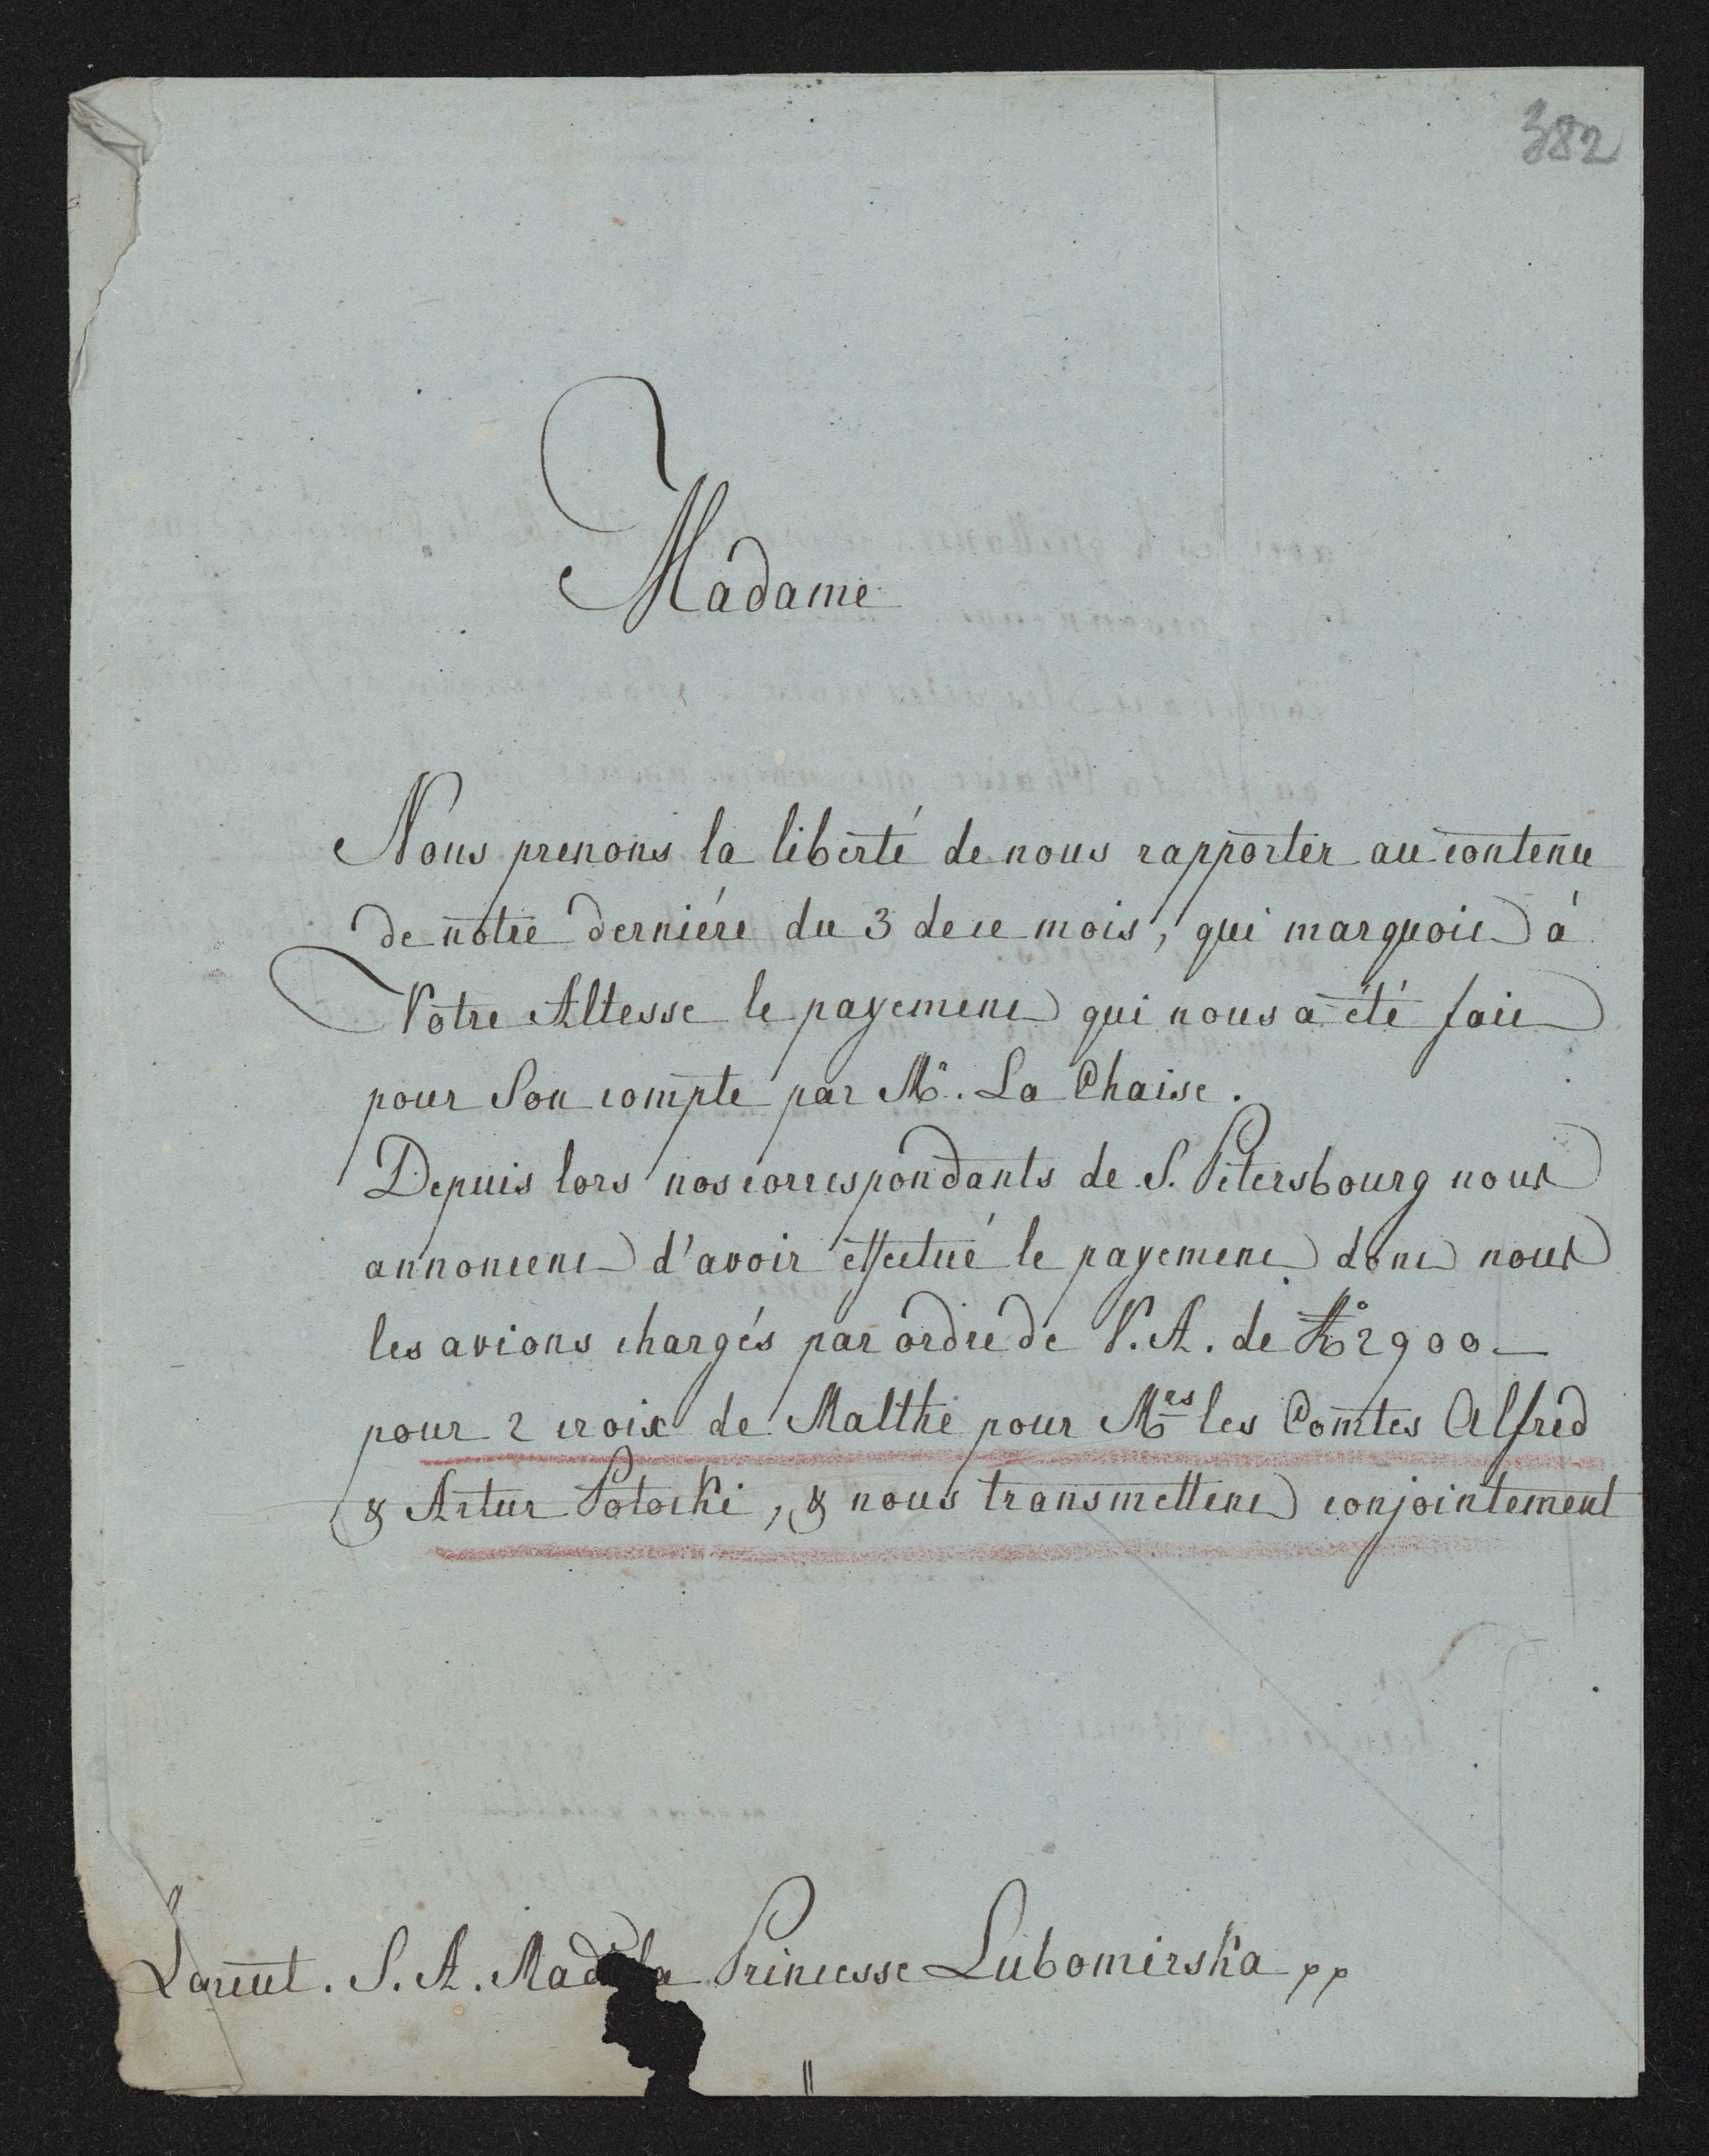 382
Madame
Nous prenons la liberté de nous rapporter au contenu
de nôtre derniére du 3 de ce mois, qui marquoit à
Votre Altesse le payement qui nous a été fait
pour Son compte par Mr. La Chaise.
Depuis lors nos correspondants de S. Petersbourg nous
annoncent d'avoir effectué le payement dont nous
les avions chargés par ordre de V. A. de Ro 2900 —
pour 2 croix de Malthe pour Mrs les Comtes Alfred
& Artur Potocki, & nous transmettent conjointement
Lancut. S. A. Made la Princesse Lubomirska pp